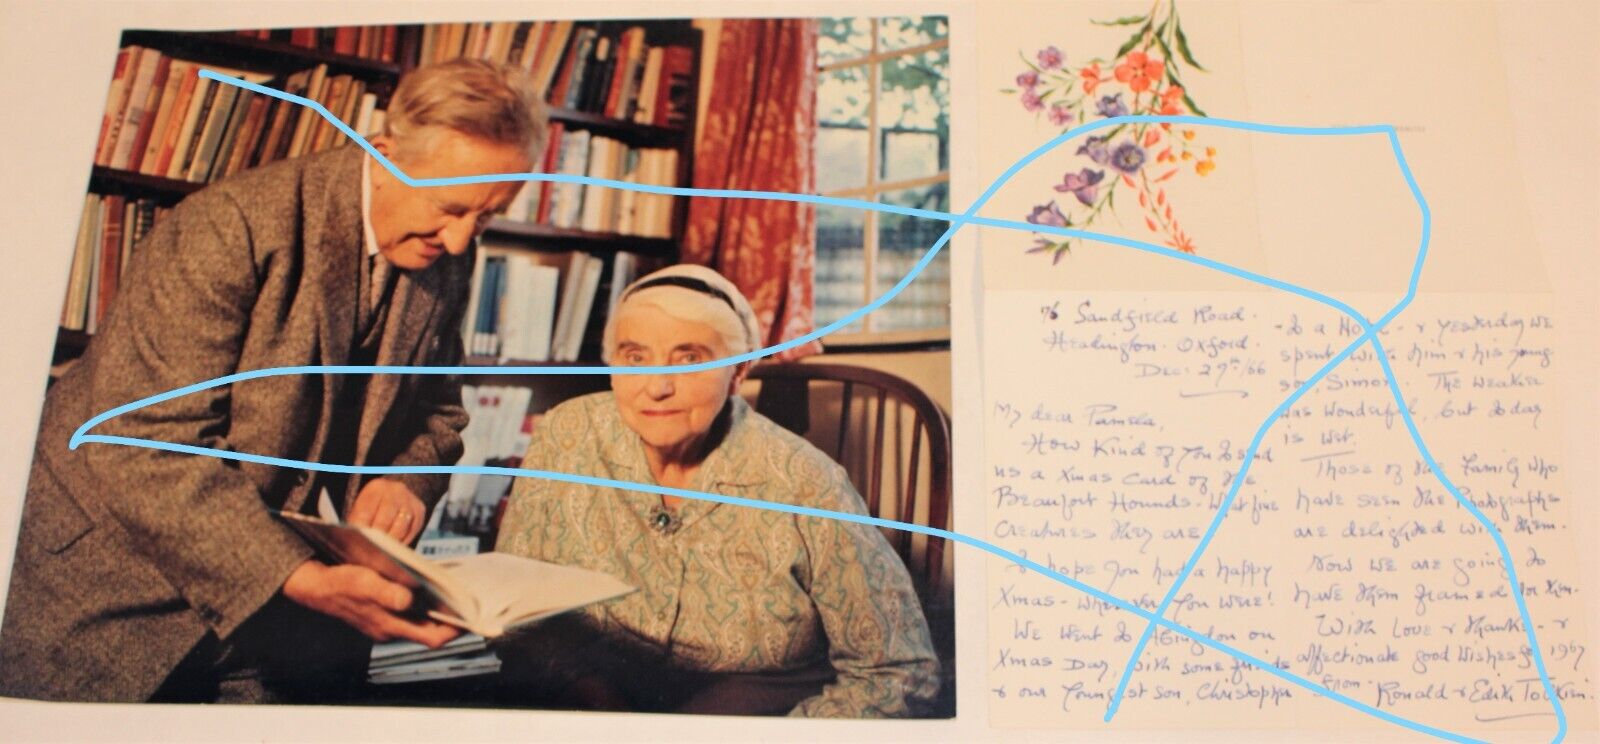 76 Sandfield Road.
Headington. Oxford.
Dec: 27th/66
My dear Pamela,
How Kind of you to send
us a Xmas Card of the
Beaufort Hounds - What fine
Creatures they are
I hope you had a happy
Xmas - wherever you were!
We went to Abingdon on
Xmas Day, with some friends
& our youngest son, Christopher
- to a Hotel - & yesterday we
spent with him & his young
son, Simon. The weather
was wonderful, but today
is wet.
Those of the Family who
have seen the Photographs
are delighted with them.
Now we are going to
have them framed for Xm.
With Love & thanks - &
affectionate good wishes for 1967
from Ronald & Edith Tolkien.